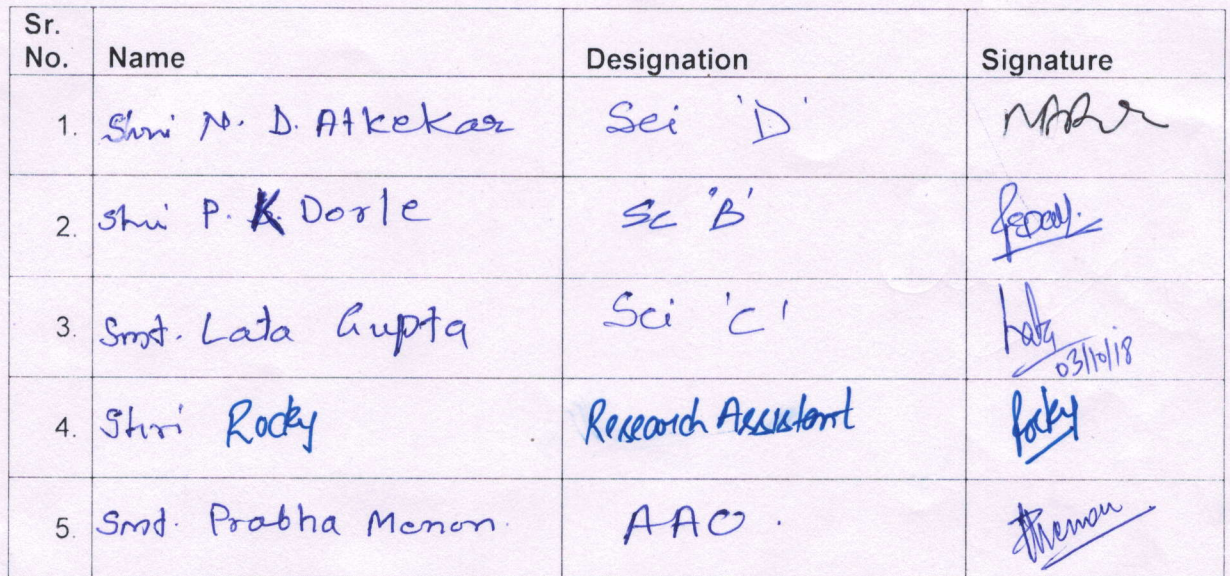 Sr.
No. Name Designation Signature
1. Shri N. D. Atkekar Sci 'D'
2. Shri P. K. Dorle Sc 'B'
3. Smt. Lata Gupta Sci 'C' Lata
03/10/18
4. Shri Rocky Research Assistant Rocky
5. Smt. Prabha Menon. AAO. Menon